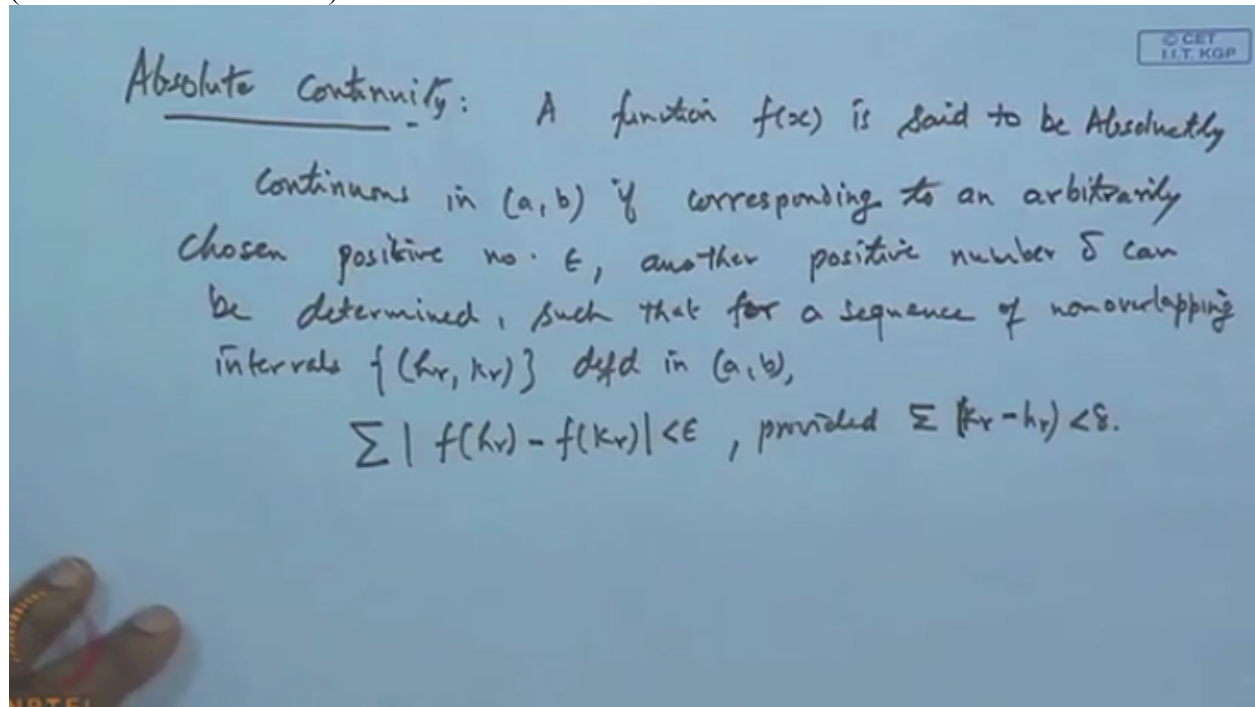 © CET
I.I.T. KGP
Absolute Continuity: A function f(x) is said to be Absoluctly
continuous in (a,b) if corresponding to an arbitrarily
chosen positive no. ε, another positive number δ can
be determined, such that for a sequence of nonoverlapping
intervals {(hr, kr)} defd in (a,b),
Σ | f(hr) - f(kr)| < ε , provided Σ (kr - hr) < δ.
NPTEL